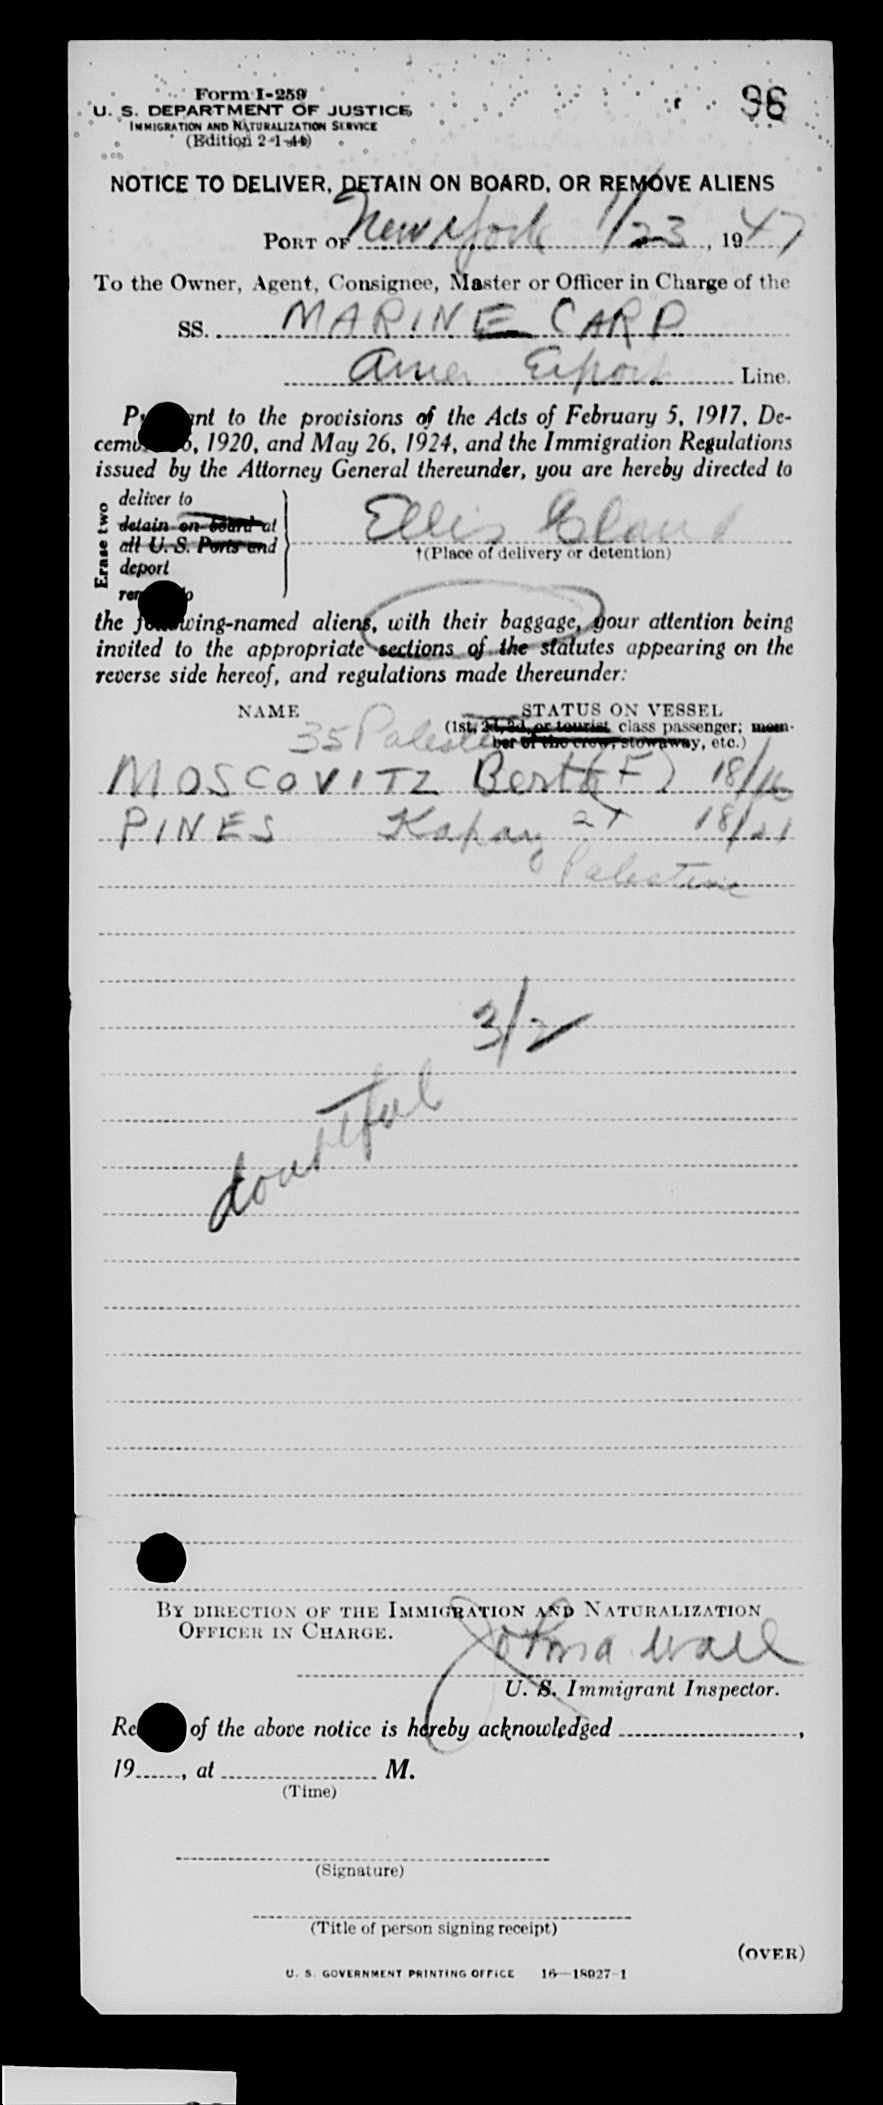 Form I-259
U. S. DEPARTMENT OF JUSTICE
IMMIGRATION AND NATURALIZATION SERVICE
(Edition 2-1-44)
96
NOTICE TO DELIVER, DETAIN ON BOARD, OR REMOVE ALIENS
PORT OF New York 1/23, 1947
To the Owner, Agent, Consignee, Master or Officer in Charge of the
SS. MARINE CARP
Amer Export Line.
P ant to the provisions of the Acts of February 5, 1917, De-
cem , 1920, and May 26, 1924, and the Immigration Regulations
issued by the Attorney General thereunder, you are hereby directed to
Erase two
deliver to
detain on board at
all U. S. Ports and
deport
rem o
Ellis Island
†(Place of delivery or detention)
the following-named aliens, with their baggage, your attention being
invited to the appropriate sections of the statutes appearing on the
reverse side hereof, and regulations made thereunder:
NAME STATUS ON VESSEL
(1st, 2d, 3d, or tourist class passenger; mem-
ber of the crew, stowaway, etc.)
35 Palestine
MOSCOVITZ Berta (F) 18/16
PINES 27 18/21
Palestine
3/2
doubtful
BY DIRECTION OF THE IMMIGRATION AND NATURALIZATION
OFFICER IN CHARGE.
U. S. Immigrant Inspector.
Re of the above notice is hereby acknowledged ,
19 , at M.
(Time)
(Signature)
(Title of person signing receipt)
(OVER)
U. S. GOVERNMENT PRINTING OFFICE 16—18027-1